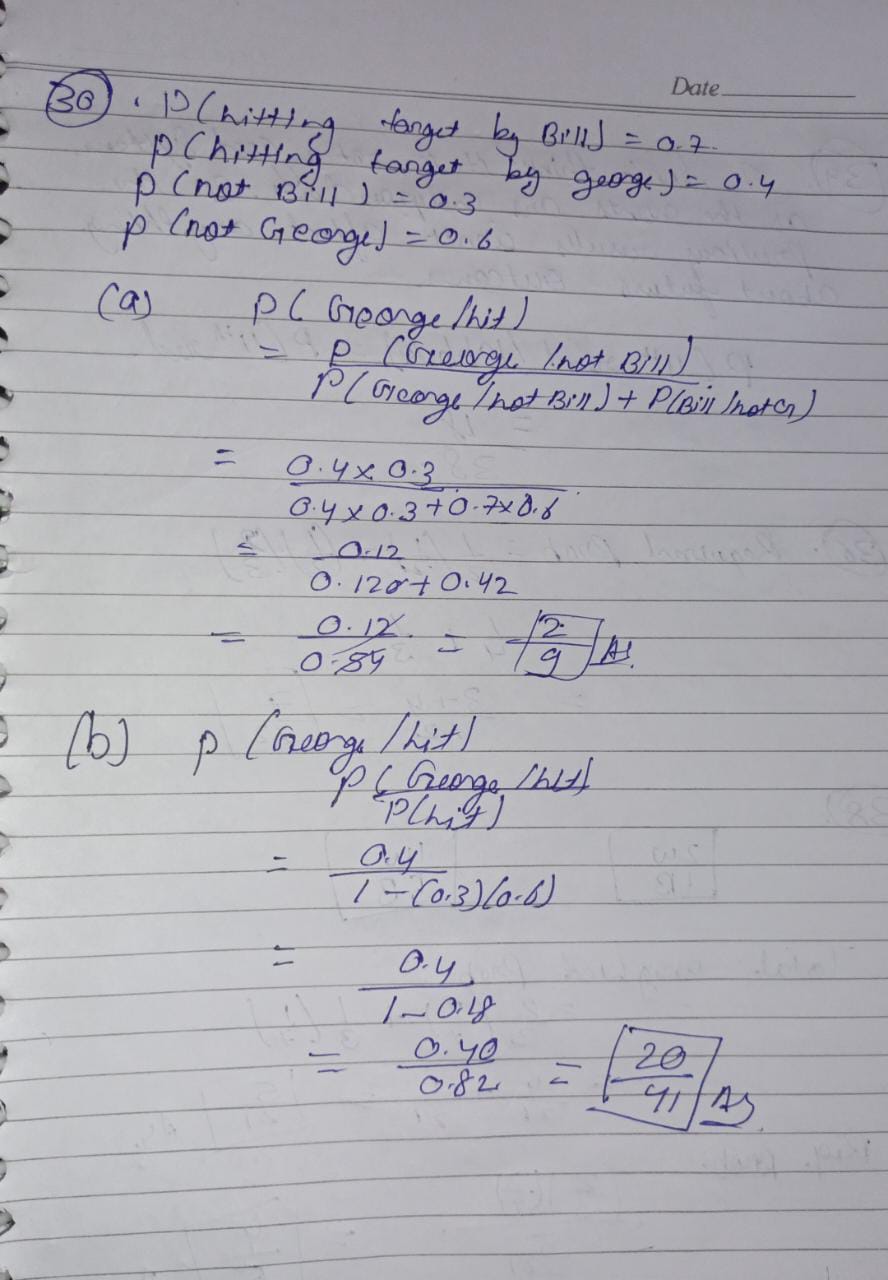 Date
30 . P(hitting target by Bill) = 0.7.
P(hitting target by george) = 0.4
P(not Bill) = 0.3
P(not George) = 0.6
(a) P(George/hit)
= P(George/not Bill)
P(George/not Bill) + P(Bill/not G)
= 0.4 x 0.3
0.4 x 0.3 + 0.7 x 0.6
= 0.12
0.120 + 0.42
= 0.12 = 2
0.54 9 As.
(b) P(George/hit)
P(George/hit)
P(hit)
= 0.4
1 - (0.3)(0.6)
= 0.4
1 - 0.18
= 0.40 = 20
0.82 41 As